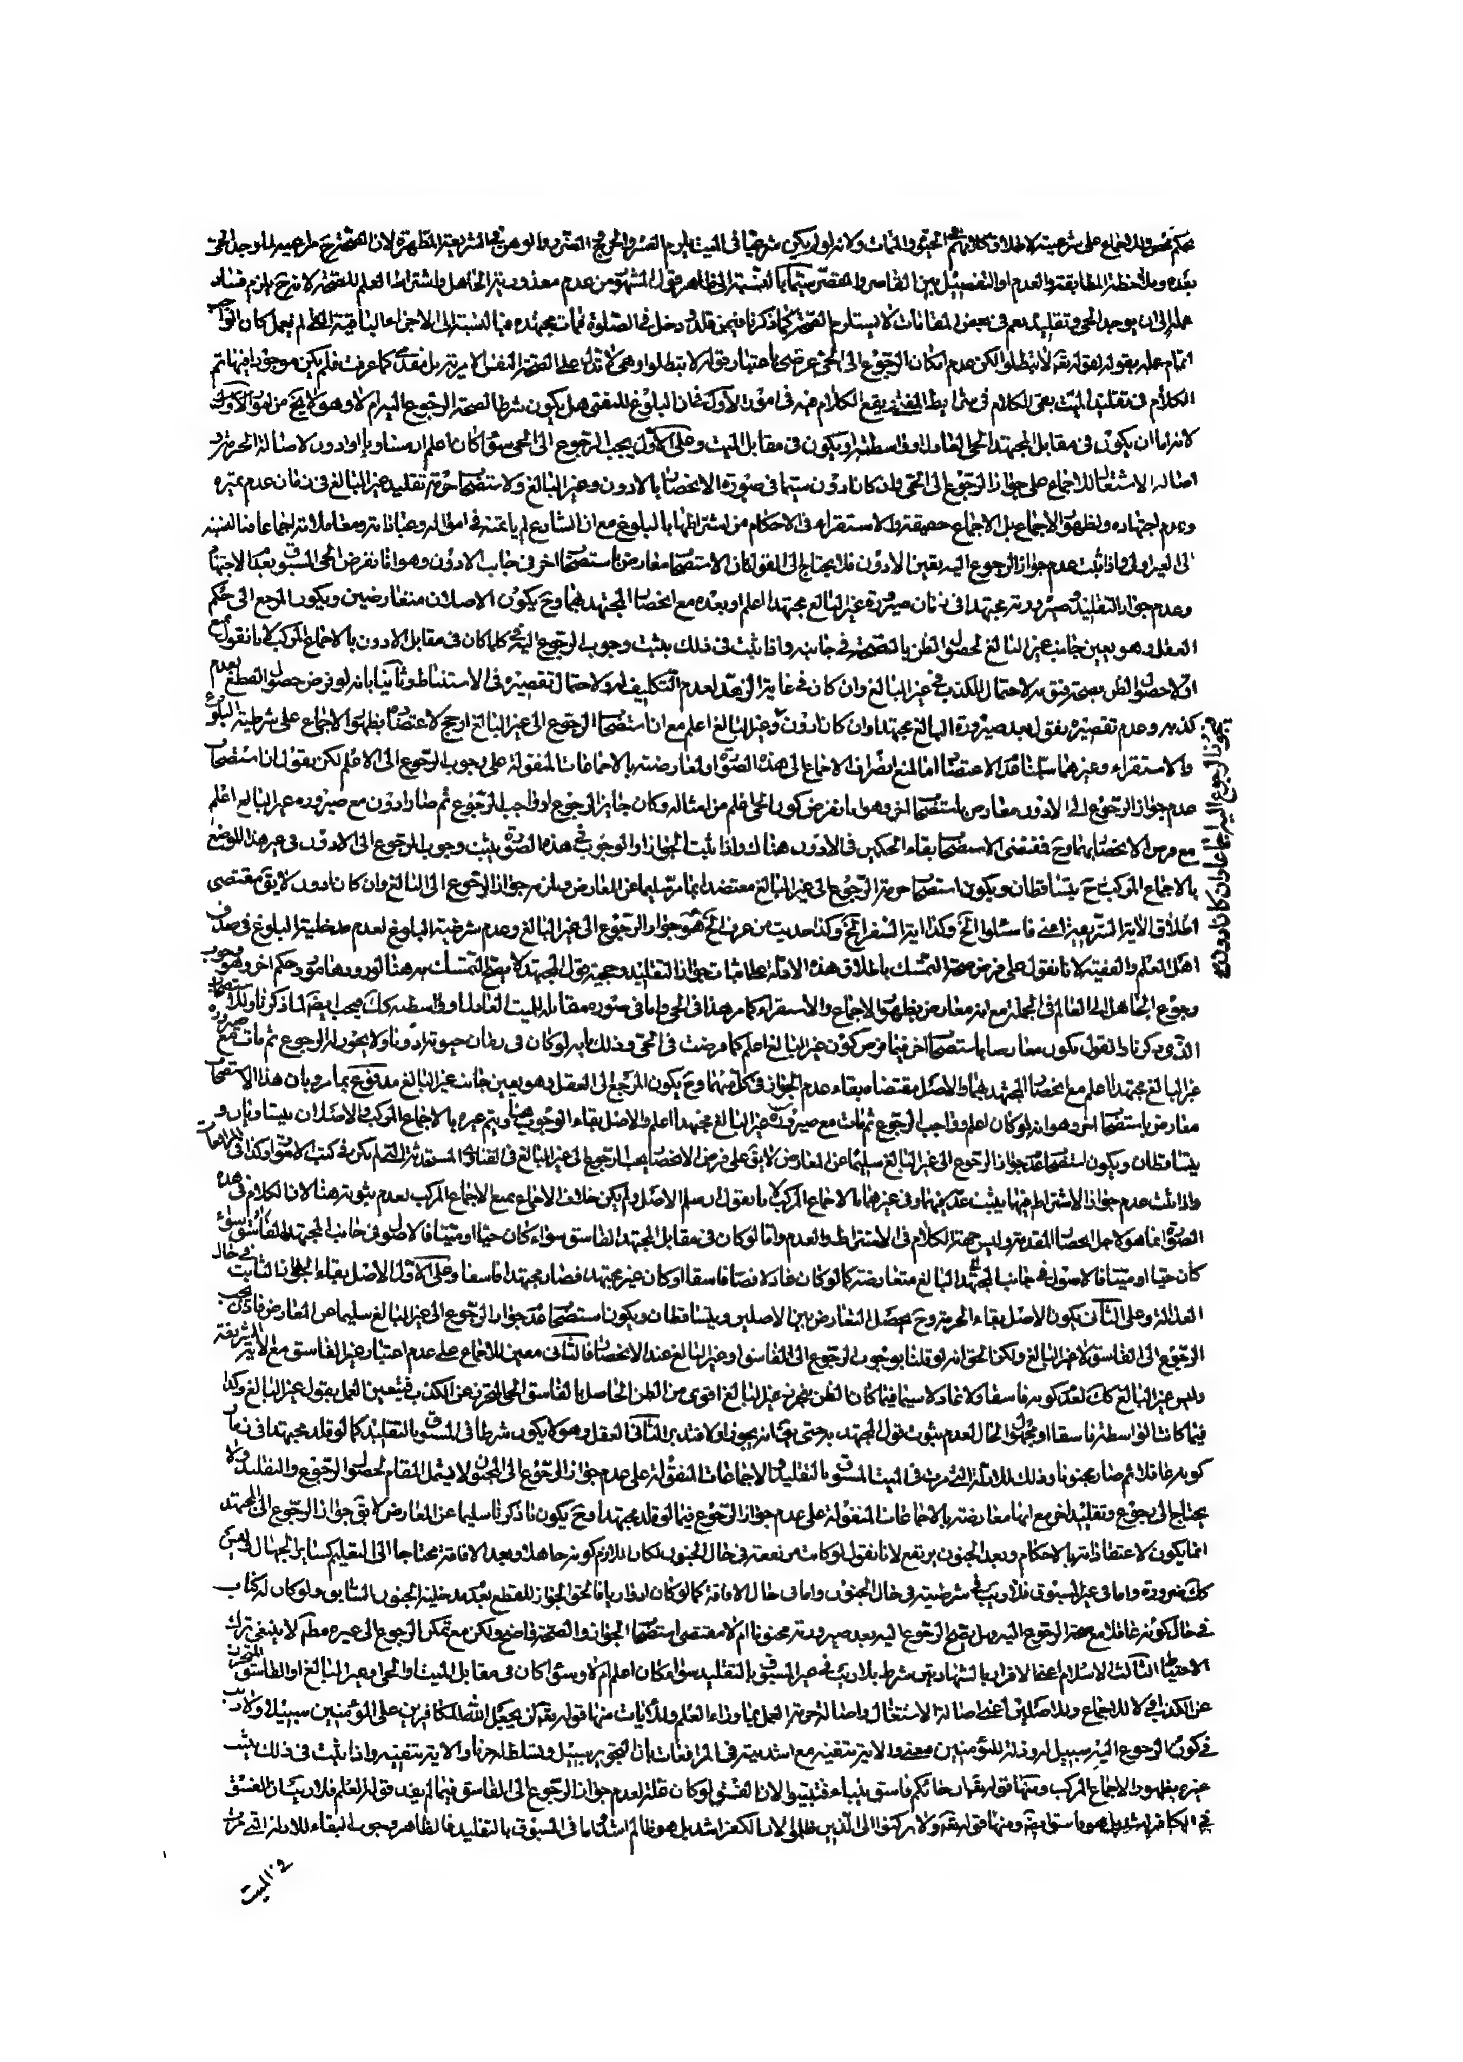 بعده وملاحظة المطابقة والعدم او التفصيل بين القاصر والمقصر سيما بالنسبة الى ظاهر قول المشهور من عدم معذورية الجاهل واشتراط العلم للصحة لا ترجيح يلزم فساد
عمله الى ان يوجد الحى وتقليده نعم فى بعض المقامات لا يستلزم الصحة كما ذكرنا فيمن قلد ودخل فى الصلوة فمات مجتهده فبالنسبة الى الاجزاء الباقية
اتمام عمله بقوله لقوله تع لا تبطلوا لكن عدم امكان الرجوع الى الحى عرضى باعتبار قوله لا تبطلوا وهى لا تدل على الصحة النفس الامرية بل كما عرفت فلم يكن موجودا فيها تم
الكلام فى تقليد الميت بقى الكلام فى شرايط المفتى يقع الكلام فيه فى امور الاول فى ان البلوغ للمفتى هل يكون شرطا لصحة الرجوع اليه ام لا وهو لا يخ من
لانه اما ان يكون فى مقابل المجتهد الحى العادل او فاسطته او يكون فى مقابل الميت وعلى الاول يجب الرجوع الى الحى سواء كان اعلم او مساويا او ادون لاصالة الحرمة و
اصالة الاشتغال للاجماع على جواز الرجوع الى الحى وان كان ادون سيما فى صورة الانحصار بالادون وغير البالغ ولاستصحاب حرمة تقليد غير البالغ فى زمان عدم تميزه
وعدم اجتهاده ولظهور الاجماع بل الاجماع حقيقة والاستقراء فى الاحكام من اشتراطها بالبلوغ مع ان الشارع لم يأتمنه فى امواله وعباداته ومعاملاته اجماعا فبالنسبة
الى الغير اولى واذا ثبت عدم جواز الرجوع اليه بقين الادون فلا يحتاج الى القول بان الاستصحاب معارض باستصحاب اخر فى جانب الادون وهو انا نفرض الحى المسبوق بعدم الاجتهاد
وعدم جواز التقليد صيرورته مجتهدا فى زمان صيرورة غير البالغ مجتهدا اعلم او بعده مع انحصار المجتهد بهما وح يكون الاصلان متعارضين ويكون المرجع الى حكم
العقل وهو يعين جانب غير البالغ لحصول الظن بالصحة فى جانبه واذا ثبت فى ذلك يثبت وجوب الرجوع اليه فى كلما كان فى مقابل الادون بالاجماع المركب لانا نقول نمنع
اولا حصول الظن بصحة قوله لاحتمال الكذب فى غير البالغ وان كان فى غاية الزهد لعدم التكليف له ولاحتمال تقصيره فى الاستنباط وثانيا بانه لو فرض حصول القطع بعدم
كذبه وعدم تقصيره نقول بعد صيرورة البالغ مجتهدا وان كان ادون وغير البالغ اعلم مع ان استصحاب الرجوع الى غير البالغ ارجح لاعتضاده بظهور الاجماع على شرطية البلوغ
والاستقراء وغيرهما سلمنا فقد الاعتضاد اما لمنع انصراف الاجماع الى هذه الصورة او لمعارضته بالاجماعات المنقولة على وجوب الرجوع الى الاعلم لكن نقول ان استصحاب
عدم جواز الرجوع الى الادون معارض باستصحاب اخر وهو انا نفرض كون الحى اعلم من امثاله وكان جايز الرجوع او واجب الرجوع ثم صار ادون مع صيرورة غير البالغ اعلم
مع فرض الانحصار بهما وح فمقتضى الاستصحاب بقاء الحكمين فى الادون هناك واذا ثبت الجواز او الوجوب فى هذه الصورة يثبت وجوب الرجوع الى الادون فى غير هذا الموضع
بالاجماع المركب ح يتساقطان ويكون استصحاب حرمة الرجوع الى غير البالغ معتضدا بما مر سليما عن المعارض ويلزمه جواز الرجوع الى البالغ وان كان ادون لا يق مقتضى
اطلاق الاية الشريفة اعنى فاسئلوا الخ وكذا اية النفر الخ وكذا حديث من عرف الخ هو جواز الرجوع الى غير البالغ وعدم شرطية البلوغ لعدم مدخلية البلوغ فى صدق
اهل العلم والفقيه لانا نقول على فرض صحة التمسك باطلاق هذه الادلة لاثبات جواز التقليد وحجية قول المجتهد لا يصح التمسك به هنا لورودها مورد حكم اخر وهو وجوب
رجوع الجاهل الى العالم فى الجملة مع انه معارض بظهور الاجماع والاستقراء كما مر هذا فى الحى واما فى صورة مقابلة الميت العادل او فاسطته كك يجب ايضا لما ذكرنا
الذى ذكرنا والقول بكون معارضا باستصحاب اخر فيما فرض كون غير البالغ اعلم كما فرضت فى الحى وذلك بانه لو كان فى زمان حيوته ادونا ولا يجوز له الرجوع ثم مات مع صيرورة
غير البالغ مجتهدا اعلم مع انحصار المجتهد بهما والاصل مقتضاه بقاء عدم الجواز فى كل منهما وح يكون المرجع الى العقل وهو يعين جانب غير البالغ مدفوع بما مر وبان هذا الاستصحاب
معارض باستصحاب اخر وهو انه لو كان اعلم وواجب الرجوع ثم مات مع صيرورة غير البالغ مجتهدا اعلم والاصل بقاء الوجوب هنا ويتم غيره بالاجماع المركب والاصلان يتساويان و
يتساقطان ويكون استصحاب عدم جواز الرجوع الى غير البالغ سليما عن المعارض لا يق على فرض الانحصار يجب الرجوع الى غير البالغ
واذا ثبت عدم جواز الاشتراط فيها يثبت عدمه فى غيرها بالاجماع المركب لانا نقول ان سلم الاصل ولم يكن خلاف الاجماع نمنع الاجماع المركب لعدم ثبوته هنا لان الكلام فى هذه
الصورة انما هو لاجل انحصار المقدمة وليس جهة الكلام فى الاشتراط والعدم واما لو كان فى مقابل المجتهد الفاسق سواء كان حيا او ميتا فالاصول فى جانب المجتهد الفاسق سواء
كان حيا او ميتا فالاصول فى جانب المجتهد البالغ متعارضة كما لو كان عادلا فصار فاسقا او كان غير مجتهد فصار مجتهدا فاسقا وعلى الاول الاصل بقاء الجواز الثابت فى حال
العدالة وعلى الثانى يكون الاصل بقاء الحرمة وح يحصل التعارض بين الاصلين ويتساقطان ويكون استصحاب عدم جواز الرجوع الى غير البالغ سليما عن المعارض فاذن يجب
الرجوع الى الفاسق لا غير البالغ ولكن الحق انه لو قلنا بوجوب الرجوع الى الفاسق او غير البالغ عند الانحصار فالثانى معين للاجماع على عدم اعتبار خبر الفاسق مع الاية الشريفة
وليس غير البالغ كك لعدم كونه فاسقا لا عادلا سيما فيما كان الظن بتحرز غير البالغ اقوى من الظن الحاصل بالفاسق الحى المتحرز عن الكذب فيتعين العمل بقول غير البالغ وكذا
فيما كانت الواسطة فاسقا او مجهول الحال لعدم ثبوت قول المجتهد به حتى يق انه يجوز اولا فتدبر الثانى العقل وهو لا يكون شرطا فى المسبوق بالتقليد كما لو قلد مجتهدا فى زمان
كونه عاقلا ثم صار مجنونا وذلك للادلة التى مرت فى الميت المسبوق بالتقليد والاجماعات المنقولة على عدم جواز الرجوع الى المجنون لا يشمل المقام لحصول الرجوع والتقليد ولا
يحتاج الى رجوع وتقليد اخر مع انها معارضة بالاجماعات المنقولة على عدم جواز الرجوع فيما لو قلد مجتهدا وح يكون ما ذكرنا سليما عن المعارض لا يق جواز الرجوع الى المجتهد
انما يكون لاعتقاداته بالاحكام وبعد الجنون يرتفع لانا نقول لو كانت مرتفعة فى حال الجنون لكان اللازم كونه جاهلا وبعد الافاقة محتاجا الى التعليم كساير الجهال وليس
كك ضرورة واما فى غير المسبوق فلا ريب فى شرطيته فى حال الجنون واما فى حال الافاقة كما لو كان ادواريا فالحق الجواز للقطع بعدم مدخلية الجنون السابق ولو كان له كتاب
فى حال كونه عاقلا مع صحة الرجوع اليه هل يصح الرجوع اليه بعد صيرورته مجنونا ام لا مقتضى استصحاب الجواز والصحة واضح ولكن مع تمكن الرجوع الى غيره مطم لا ينبغى ترك
الاحتياط الثالث الاسلام اعنى الاقرار بالشهادتين شرط بلا ريب فى غير المسبوق بالتقليد سواء كان اعلم ام لا وسواء كان فى مقابل الميت او الحى او غير البالغ او الفاسق المتحرز
عن الكذب ام لا للاجماع وللاصلين اعنى اصالة الاشتغال واصالة حرمة العمل بما وراء العلم وللايات منها قوله تع لن يجعل الله للكافرين على المؤمنين سبيلا ولا ريب
فى كون الرجوع اليه سبيل له وذلة للمؤمنين معه والاية تنفيه مع استدلالهم فى المرافعات بان التجويز سبيل وتسلط له هنا والاية تنفيه واذا ثبت فى ذلك يثبت
غيره بظهور الاجماع المركب ومنها قوله تع ان جائكم فاسق بنباء فتبينوا لان الفسق لو كان علة لعدم جواز الرجوع الى الفاسق فيما لم يفد قوله العلم فلا ريب ان الفسق
فى الكافر اشد بل هو فاسق ايضا ومنها قوله تع ولا تركنوا الى الذين ظلموا لان الكفر اشد بل هو ظالم اشد واما فى المسبوق بالتقليد فالظاهر وجوب البقاء للادلة التى مرت
فى الميت